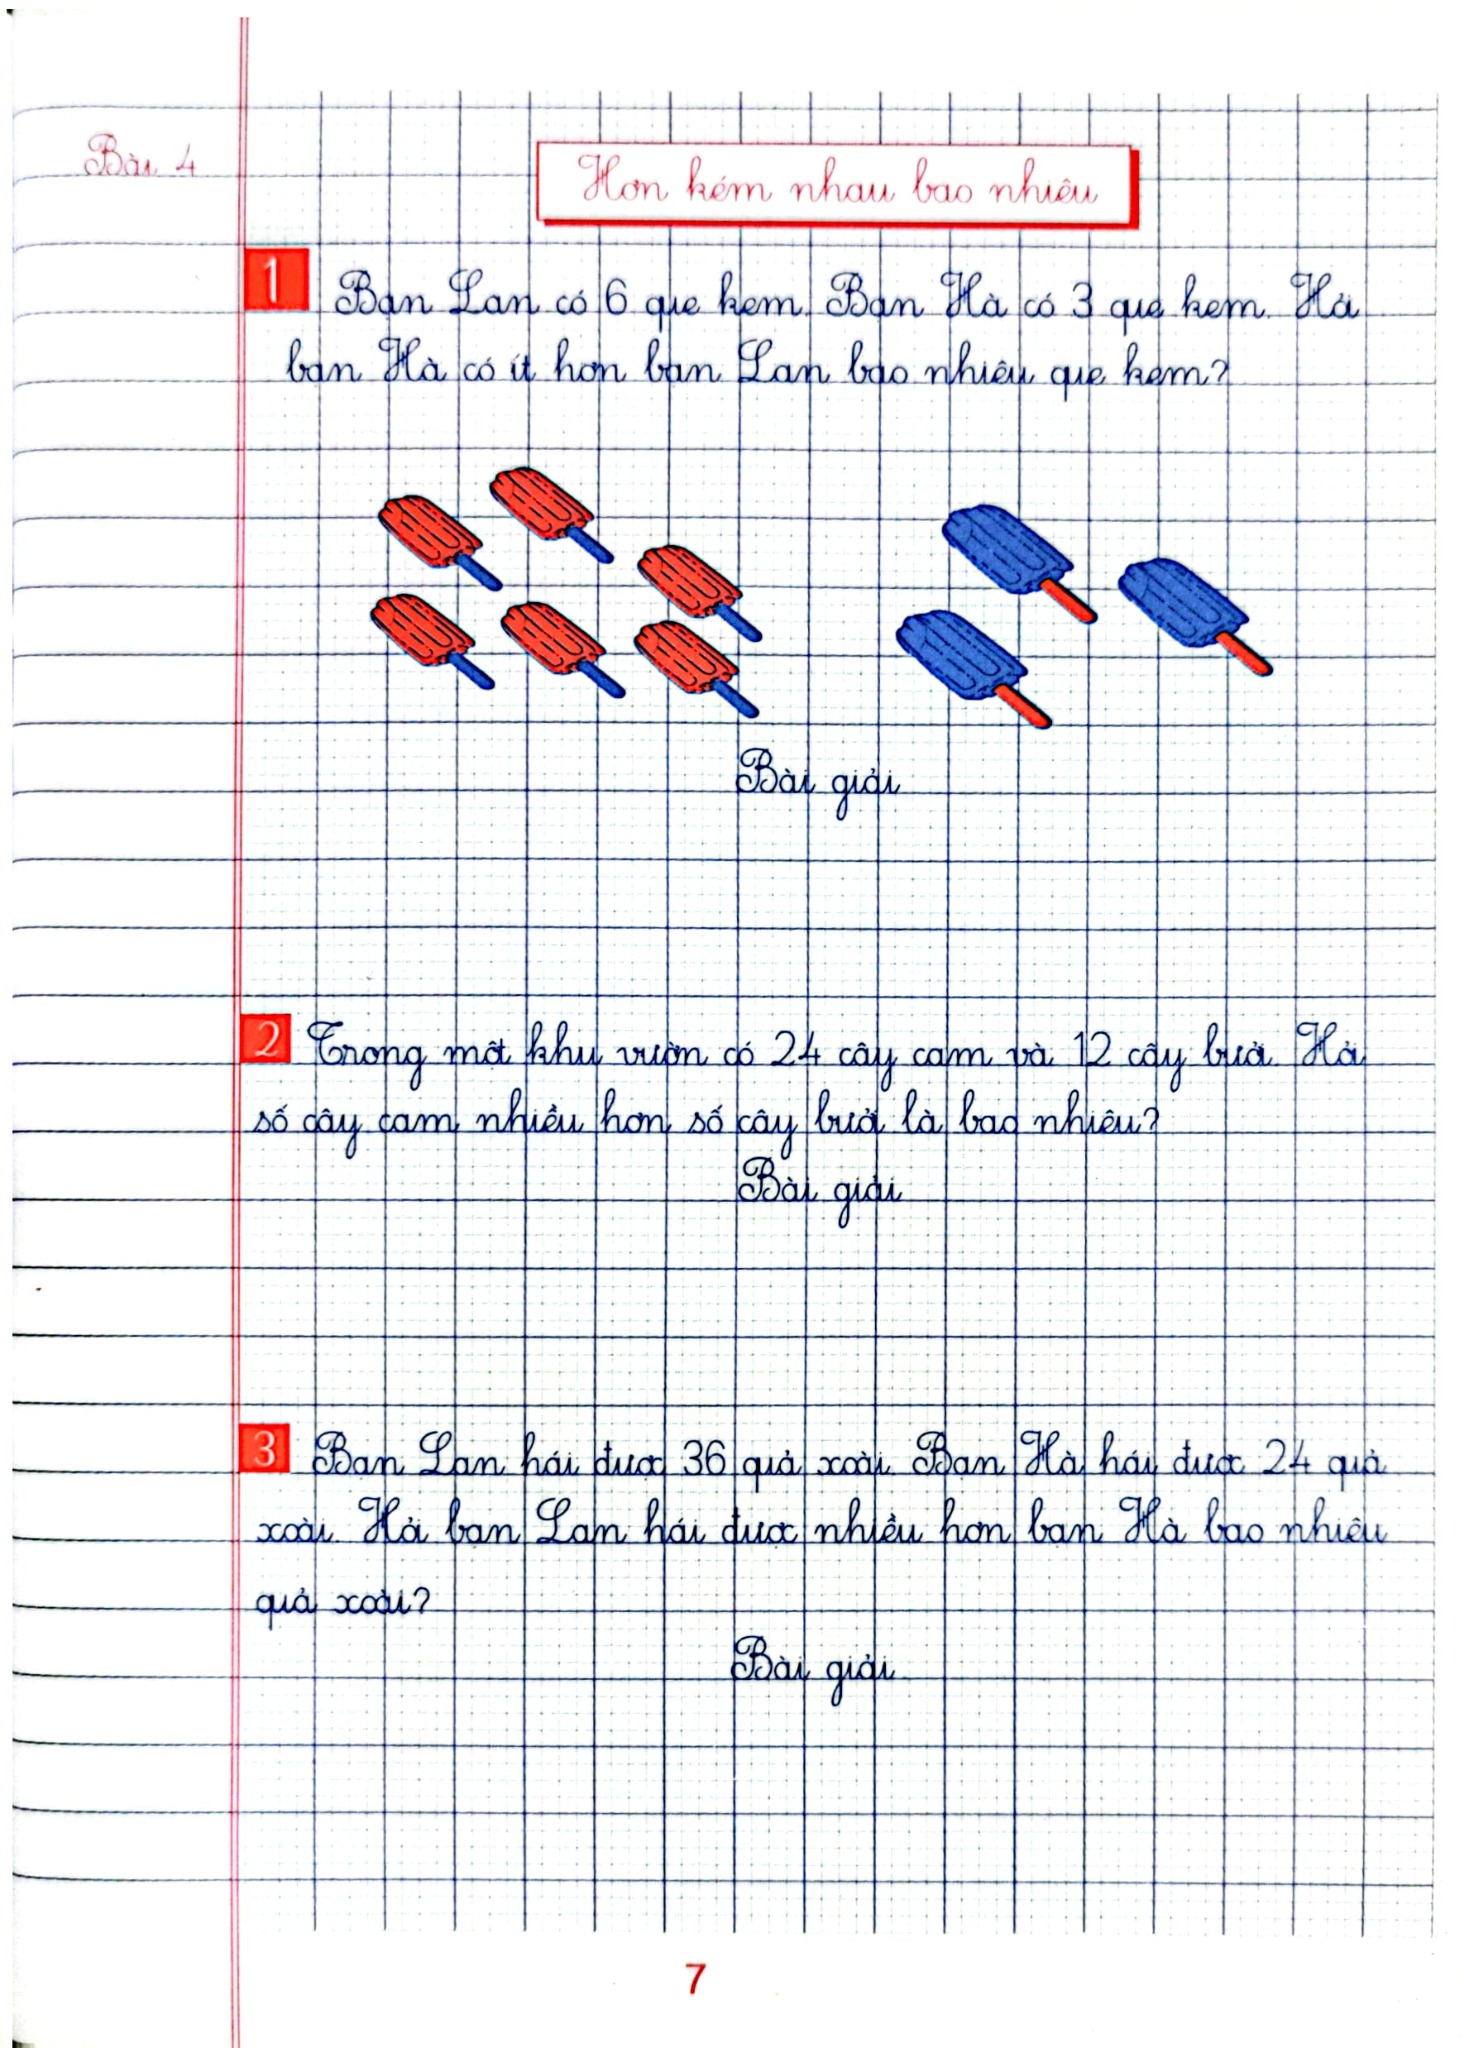 Bài 4
Hơn kém nhau bao nhiêu
1 Bạn Lan có 6 que kem. Bạn Hà có 3 que kem. Hỏi
bạn Hà có ít hơn bạn Lan bao nhiêu que kem?
Bài giải
2 Trong một khu vườn có 24 cây cam và 12 cây bưởi. Hỏi
số cây cam nhiều hơn số cây bưởi là bao nhiêu?
Bài giải
3 Bạn Lan hái được 36 quả xoài. Bạn Hà hái được 24 quả
xoài. Hỏi bạn Lan hái được nhiều hơn bạn Hà bao nhiêu
quả xoài?
Bài giải
7